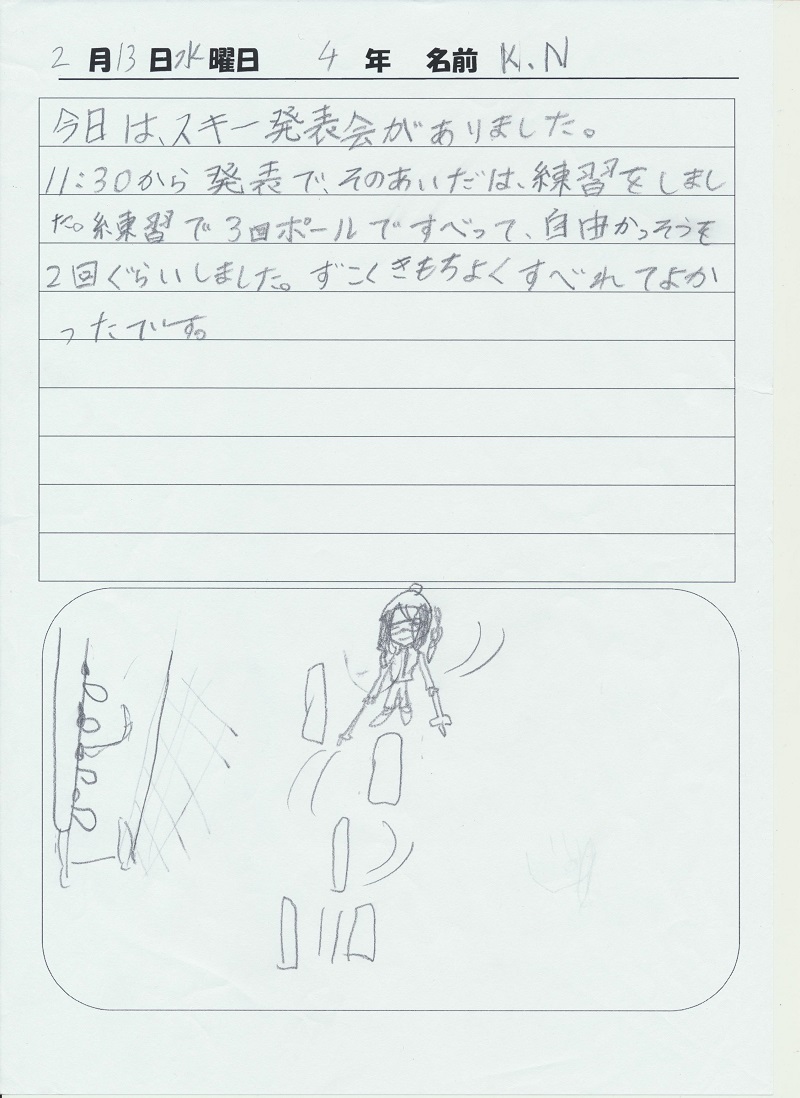 2月13日水曜日 4年 名前 K.N
今日は、スキー発表会がありました。
11:30から発表で、そのあいだは、練習をしまし
た。練習で3回ポールですべって、自由かっそうを
2回ぐらいしました。ずこくきもちよくすべれてよか
ったです。